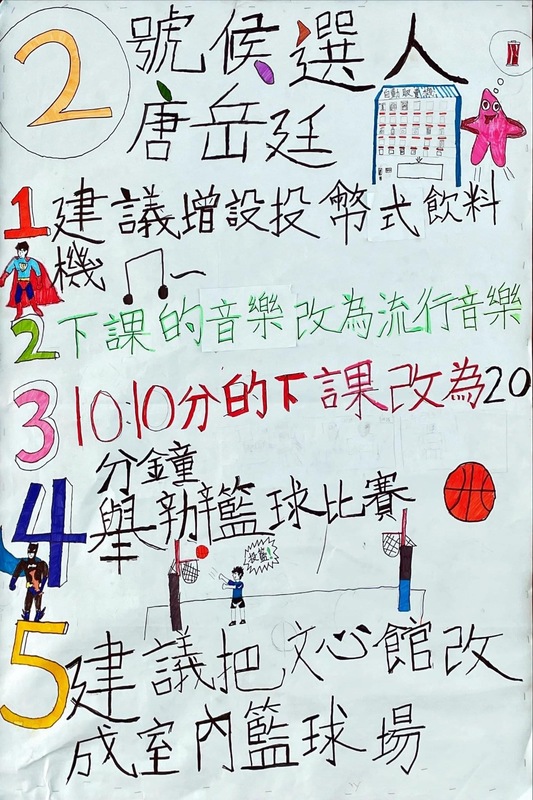 2 號候選人
唐岳廷
自動販賣機
1 建議增設投幣式飲料
機
2 下課的音樂改為流行音樂
3 10:10分的下課改為20
分鐘
4 舉辦籃球比賽
投籃!
5 建議把文心館改
成室內籃球場